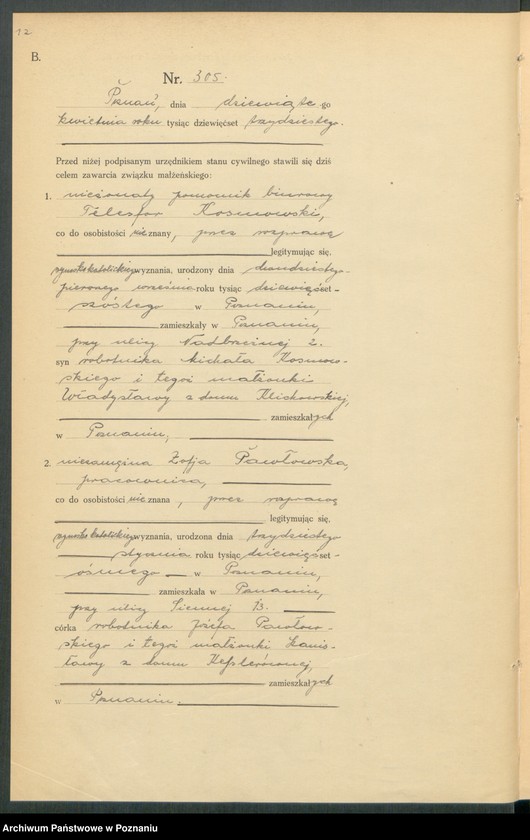 12
B.
Nr. 305.
Poznań, dnia dziewiąte-go
kwietnia roku tysiąc dziewięćset trzydziestego.
Przed niżej podpisanym urzędnikiem stanu cywilnego stawili się dziś
celem zawarcia związku małżeńskiego:
1. nieżonaty pomocnik biurowy
Telesfor Kosmowski,
co do osobistości nieznany, przez rozprawę
legitymując się,
rzymsko katolickiego wyznania, urodzony dnia dwudziestego
pierwszego września roku tysiąc dziewięćset-
szóstego w Poznaniu,
zamieszkały w Poznaniu,
przy ulicy Nadbrzeżnej 2.
syn robotnika Michała Kosmow-
skiego i tegoż małżonki
Władysławy z domu Klichowskiej,
zamieszkałych
w Poznaniu,
2. niezamężna Zofja Pawłowska,
pracownica,
co do osobistości nieznana, przez rozprawę
legitymując się,
rzymsko katolickiego wyznania, urodzona dnia trzydziestego
stycznia roku tysiąc dziewięćset-
ósmego w Poznaniu,
zamieszkała w Poznaniu,
przy ulicy Siennej 13.
córka robotnika Józefa Pawłow-
skiego i tegoż małżonki Stanis-
ławy z domu
zamieszkałych
w Poznaniu.
Archiwum Państwowe w Poznaniu